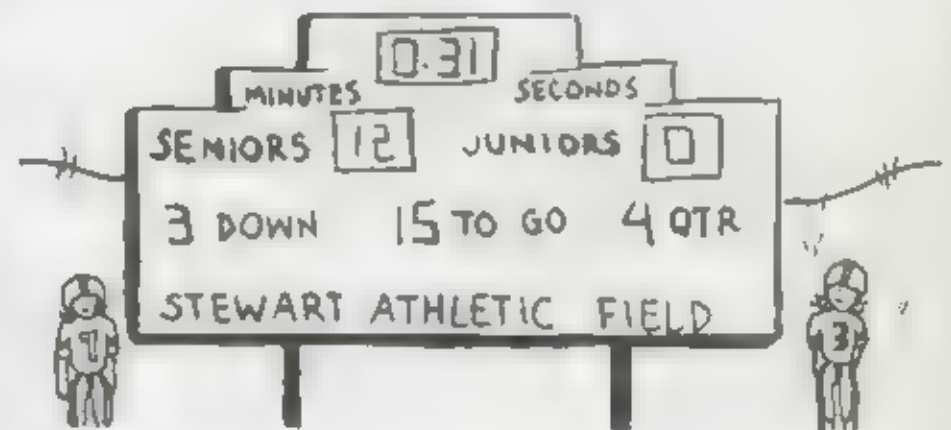 0.31
MINUTES SECONDS
SENIORS 12 JUNIORS 0
3 DOWN 15 TO GO 4 QTR
STEWART ATHLETIC FIELD
3